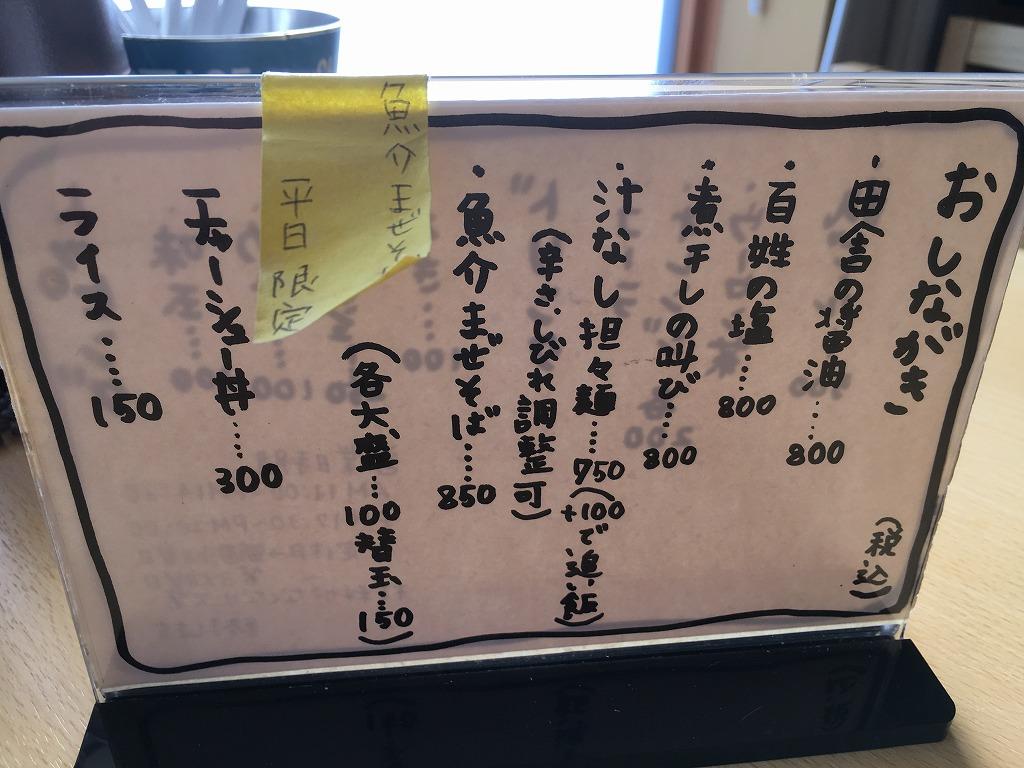 おしながき
(税込)
・田舎の醤油……800
・百姓の塩……800
・煮干しの叫び……800
・汁なし担々麺……750(+100で追い飯)
(辛さ、しびれ調整可)
・魚介まぜそば……850
(各大盛…100 替玉…150)
魚介まぜそ
平日限定
チャーシュー丼……300
ライス……150